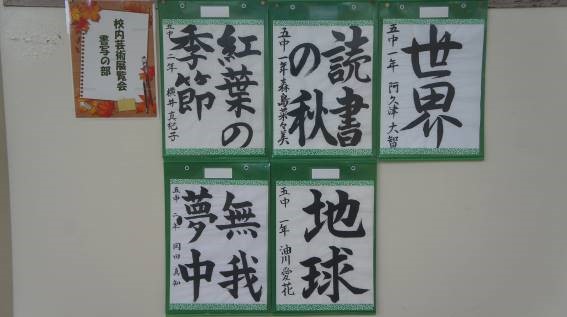 校内芸術展覧会
書写の部
紅葉の
季節
五中 二年 横井真紀子
読書
の秋
五中 一年 森島菜々美
世界
五中 一年 阿久津大智
無我
夢中
五中 二年 岡田真知
地球
五中 一年 油川愛花